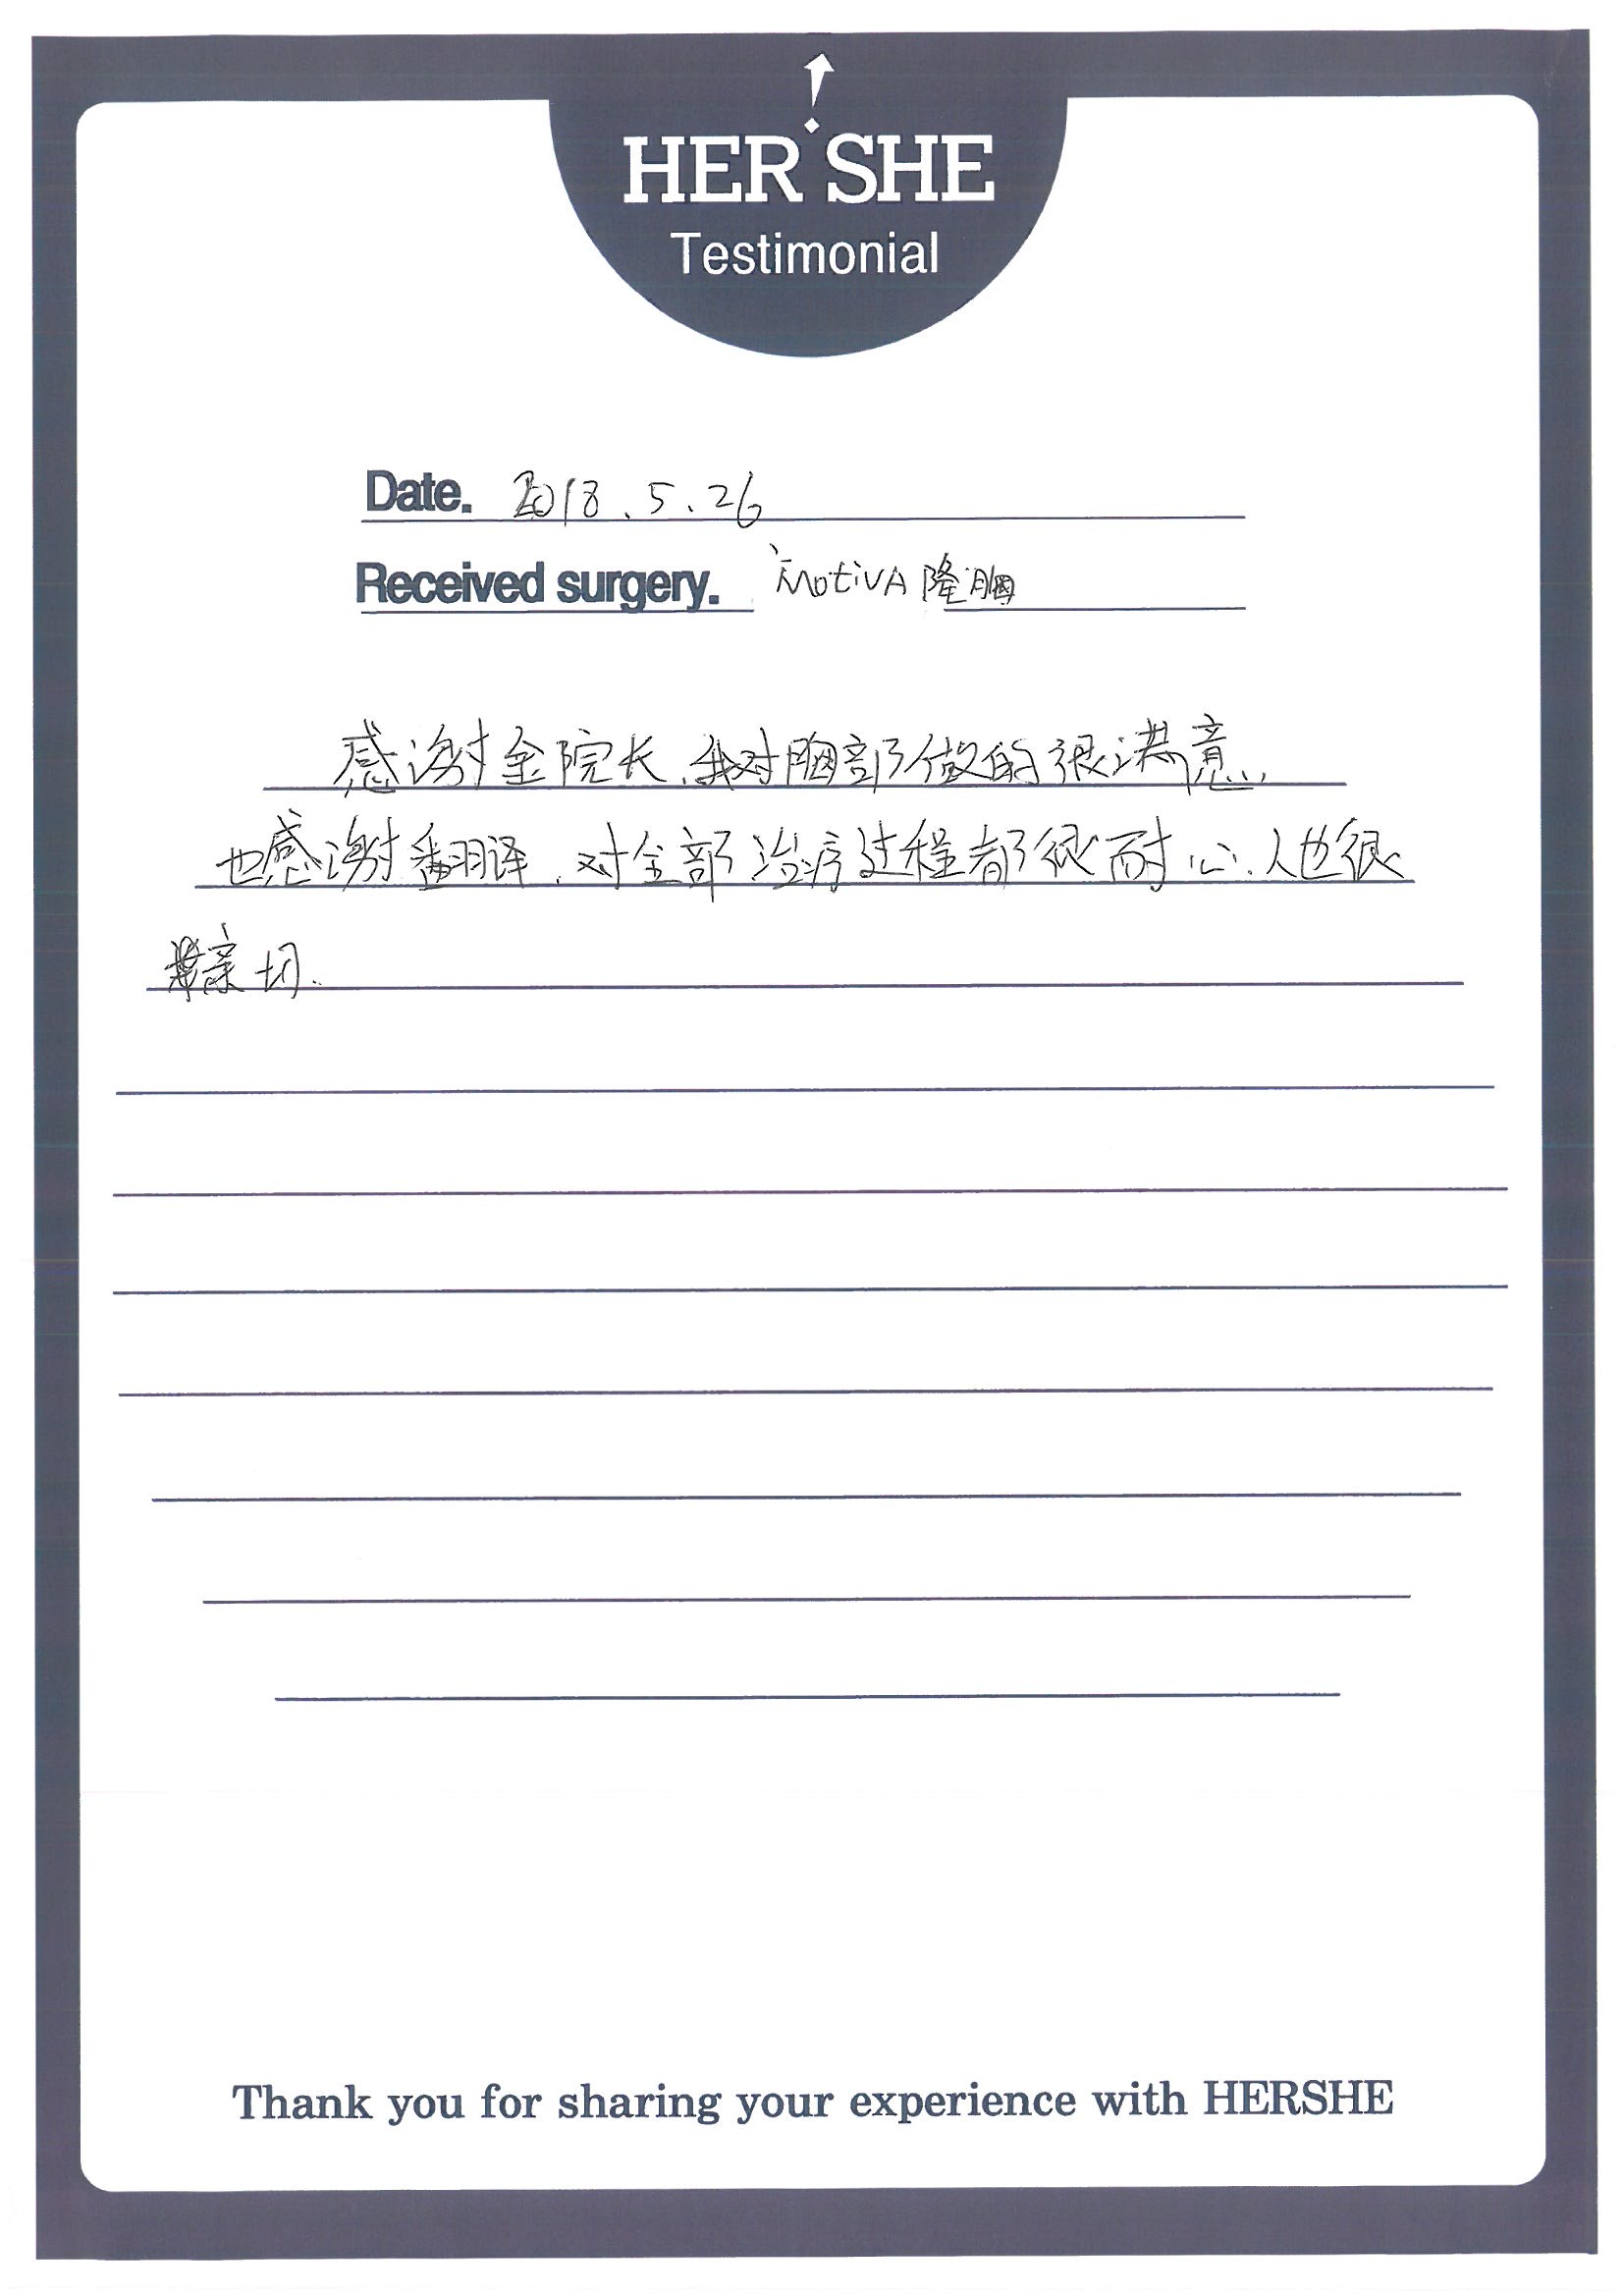 HER SHE
Testimonial
Date. 2018.5.26
Received surgery. MotivA 隆胸
感谢金院长、我对胸部做的很满意.
也感谢翻译.对全部治疗过程都很耐心.人也很
亲切.
Thank you for sharing your experience with HERSHE